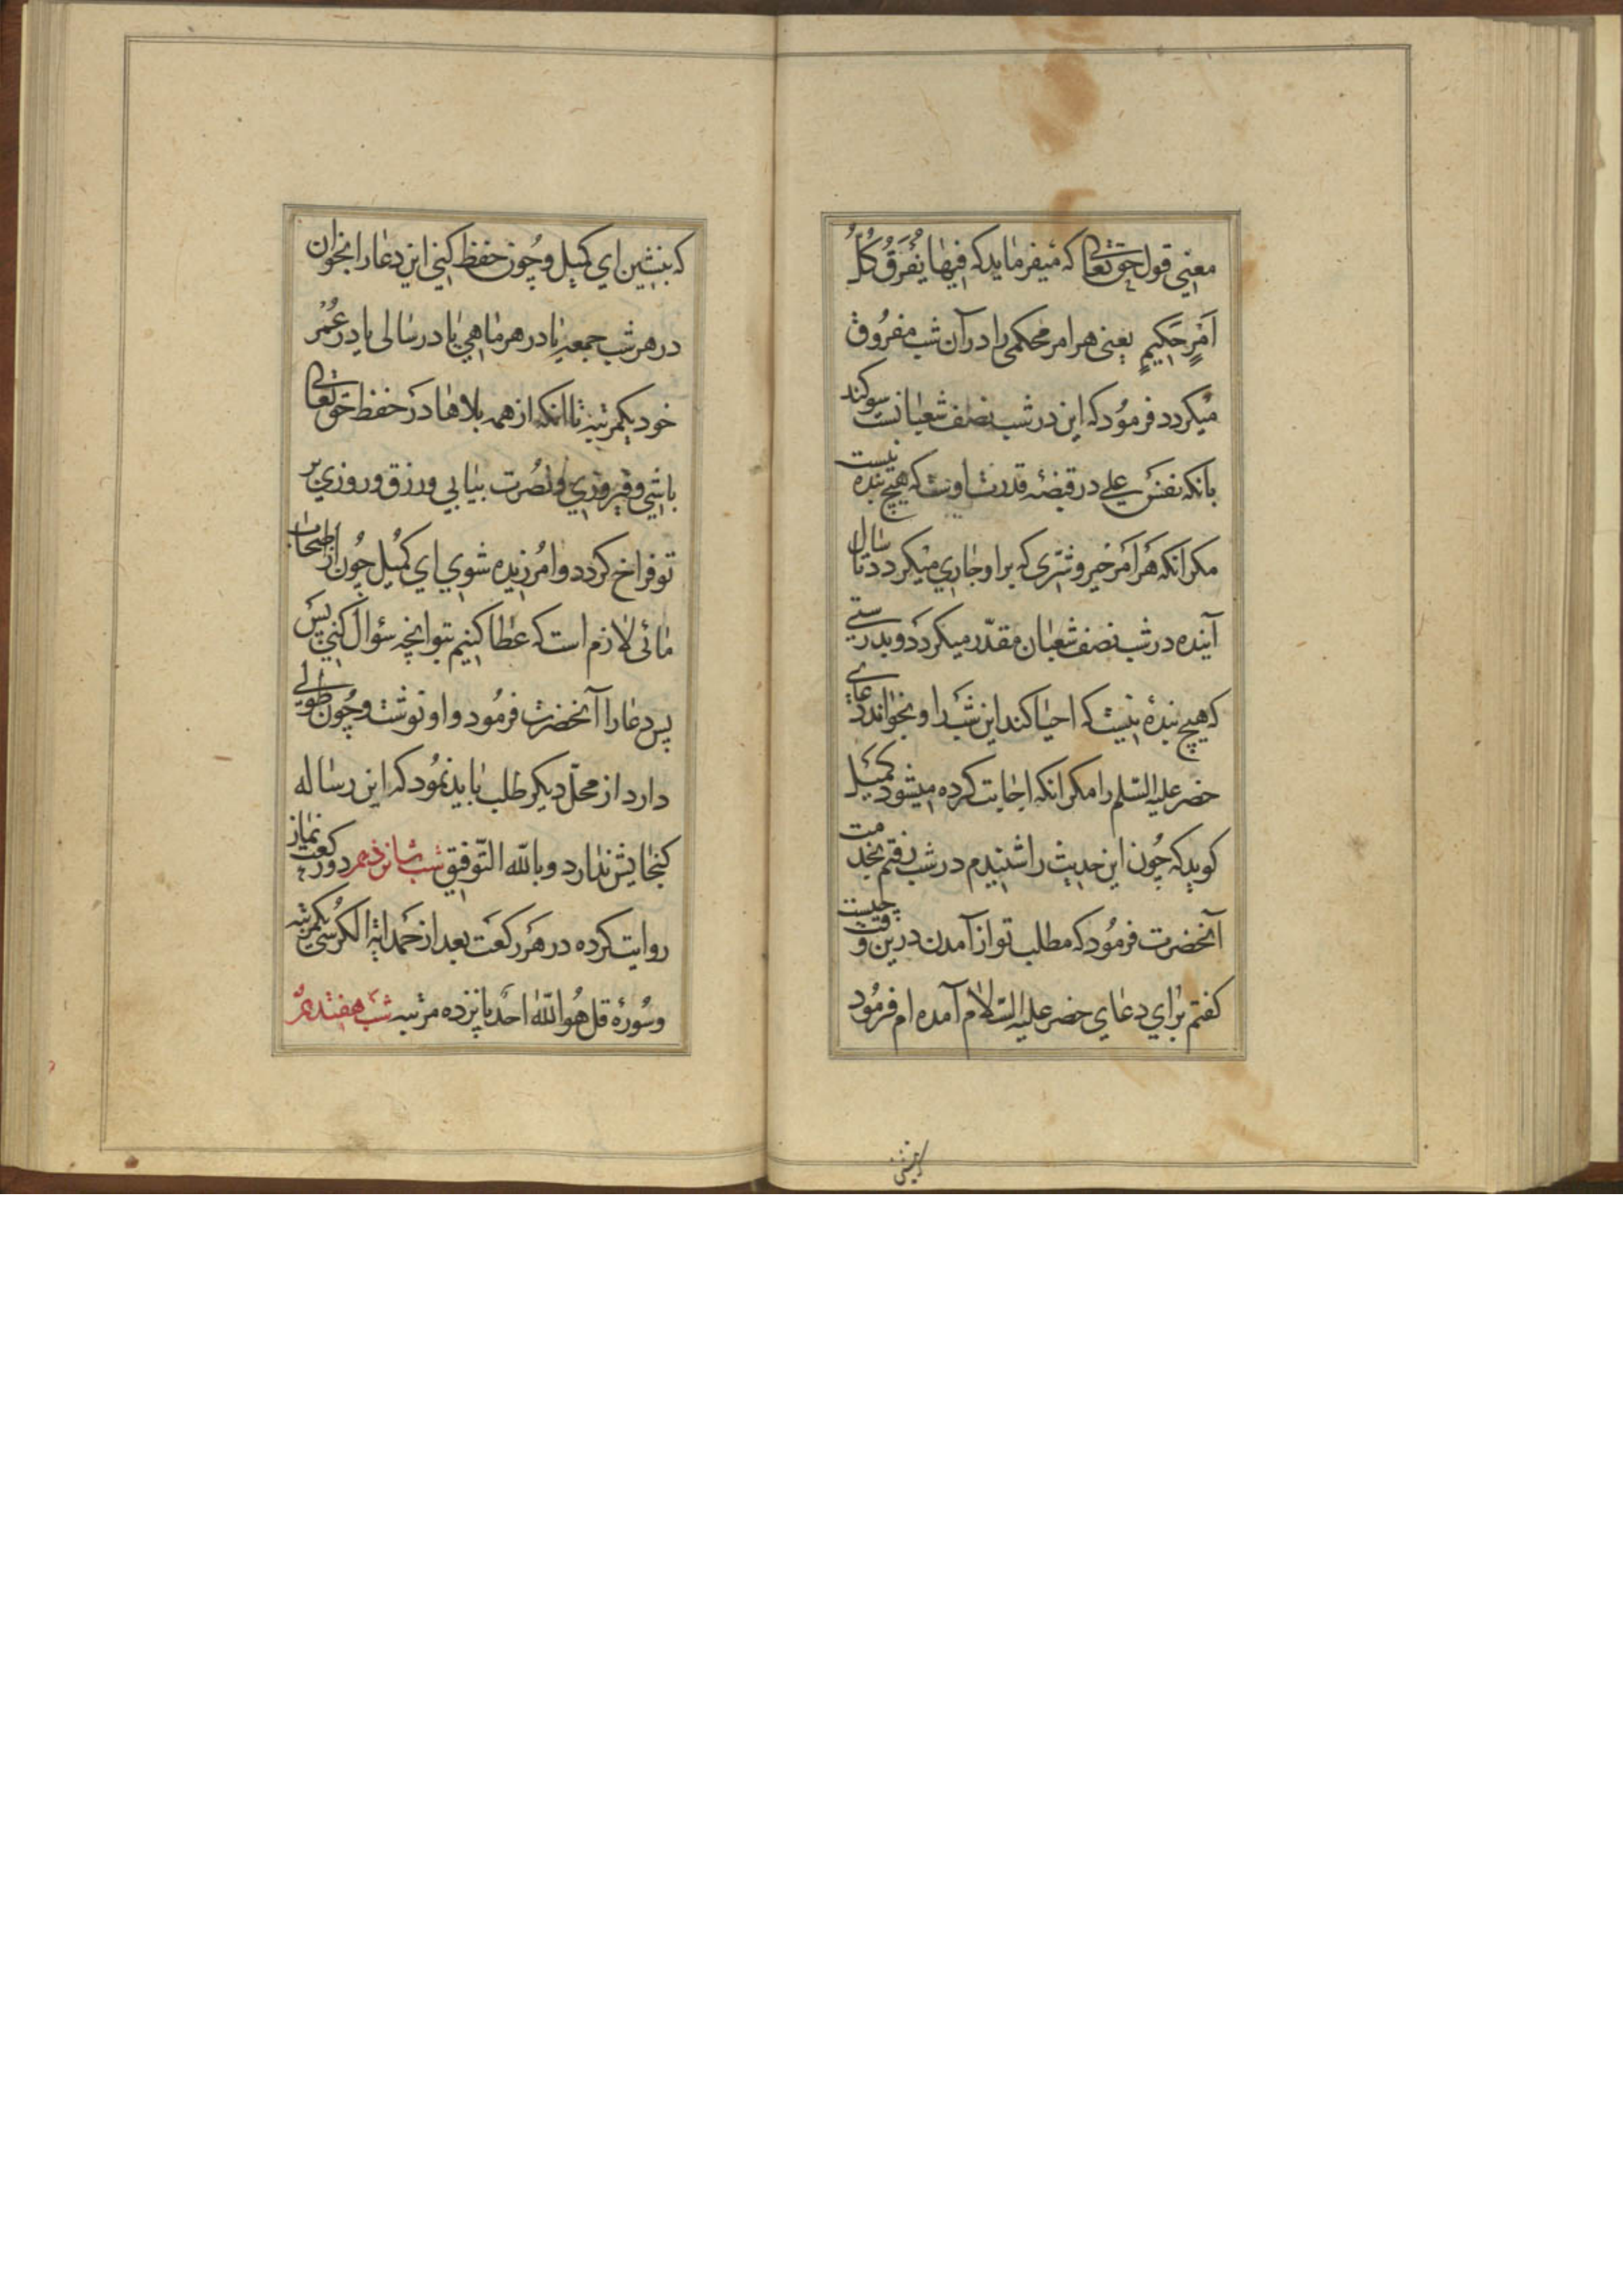 معنی قول حق تعالی که میفرماید که فیها یُفرَقُ کُلُّ
اَمْرٍ حَکِیمٍ یعنی هر امر محکمی را در آن شب مفروق
میکردد فرمود که این در شب نصف شعبانست سوکند
بانکه نفس علی در قبضه قدرت اوست که هیچ بنده نیست
مکر انکه هر امر خیر و شری که بر او جاری میکردد تا سال
آینده در شب نصف شعبان مقدّر میکردد و بدرستی
که هیچ بنده نیست که احیا کند این شب را و بخواند دعای
خضر علیه السّلم را مکر انکه اجابت کرده میشود کمیل
کوید که چون این حدیث را شنیدم در شب رفتم بخدمت
آنحضرت فرمود که مطلب تو از آمدن درین وقت چیست
کفتم برای دعای خضر علیه السّلام آمده ام فرمود
که بنشین ای کمیل و چون حفظ کنی این دعا را بخوان
در هر شب جمعه یا در هر ماهی یا در سالی یا در عُمْر
خود یکمرتبه تا انکه از همه بلاها در حفظ حق تعالی
باشی و فیروزی و نصرت بیابی و رزق و روزی بر
تو فراخ کردد و امرزیده شوی ای کمیل چون از اصحاب
مائی لازم است که عطا کنیم بتو انچه سؤال کنی پس
پس دعا را آنحضرت فرمود و او نوشت و چون طولی
دارد از محلّ دیکر طلب باید نمود که این رساله
کنجایش ندارد و بالله التّوفیق شب شانزدهم دو رکعت نماز
روایت کرده در هر رکعت بعد از حمد ایة الکرسی یکمرتبه
و سورۀ قل هو اللّه احد پانزده مرتبه شب هفتدهم